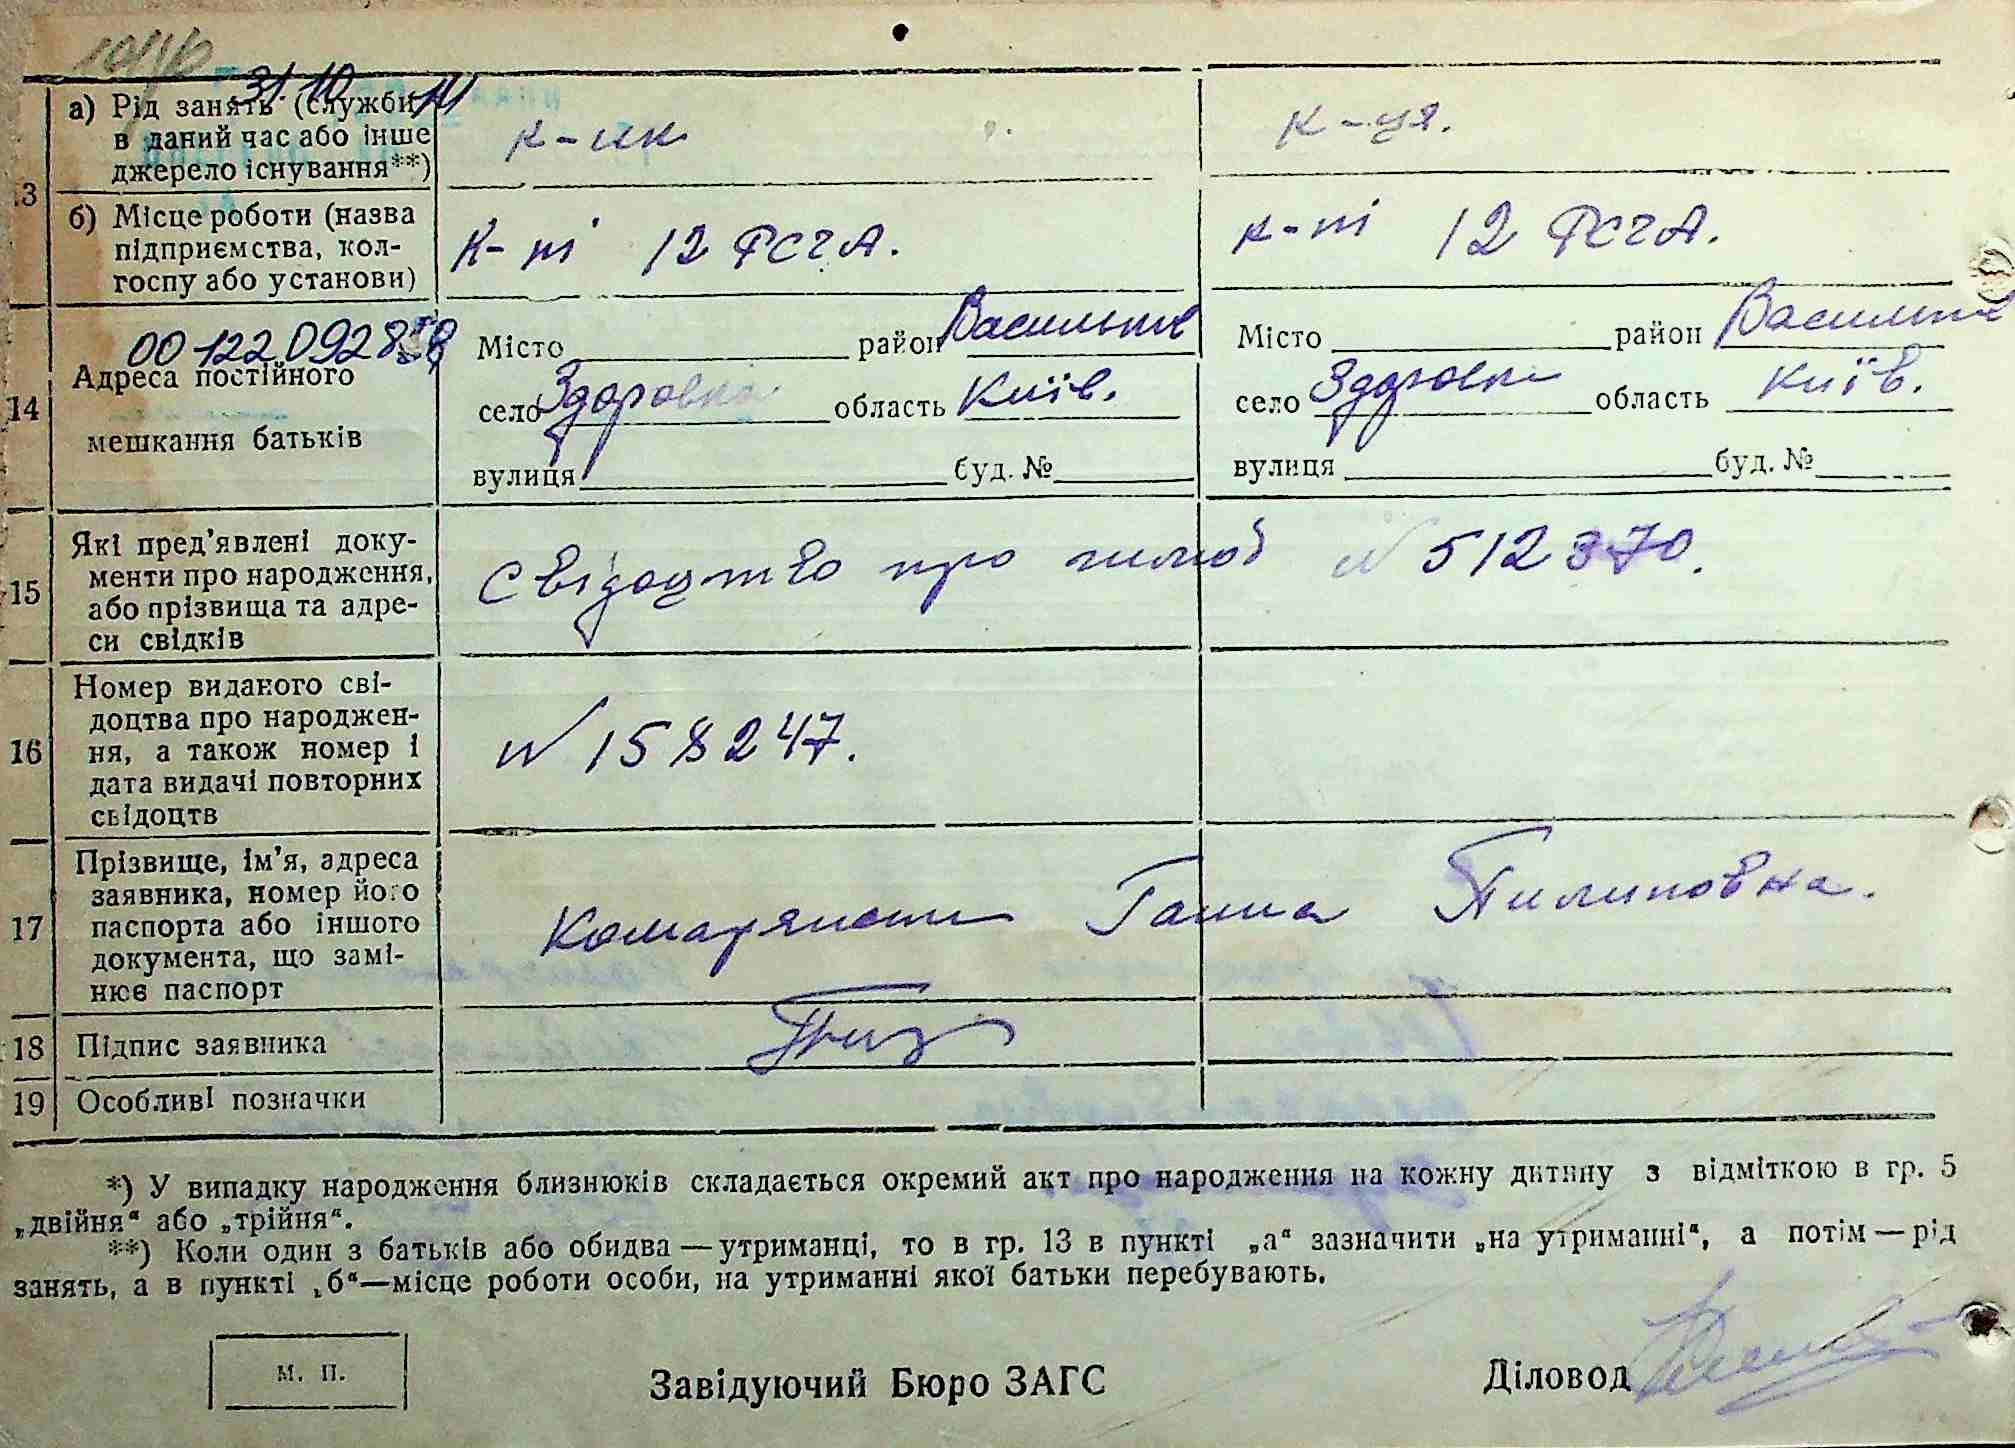 31.10
а) Рід занять (служби
в даний час або інше
джерело існування**)
к-ик
к-ця.
13
б) Місце роботи (назва
підприємства, кол-
госпу або установи)
К-пі 12 РСЧА.
к-пі 12 РСЧА.
14
00122092858
Адреса постійного
мешкання батьків
Місто район Васильків
село Здоровка область Київ.
вулиця буд. №
Місто район Васильків
село Здоровка область Київ.
вулиця буд. №
15
Які пред'явлені доку-
менти про народження,
або прізвища та адре-
си свідків
Свідоцтво про шлюб N 512370.
16
Номер виданого сві-
доцтва про народжен-
ня, а також номер і
дата видачі повторних
свідоцтв
N 158247.
17
Прізвище, ім'я, адреса
заявника, номер його
паспорта або іншого
документа, що замі-
нює паспорт
Ганна Пилиповна.
18
Підпис заявника
19
Особливі позначки
*) У випадку народження близнюків складається окремий акт про народження на кожну дитину з відміткою в гр. 5
„двійня“ або „трійня“.
**) Коли один з батьків або обидва — утриманці, то в гр. 13 в пункті „а“ зазначити „на утриманні“, а потім — рід
занять, а в пункті „б“—місце роботи особи, на утриманні якої батьки перебувають.
М. П.
Завідуючий Бюро ЗАГС
Діловод